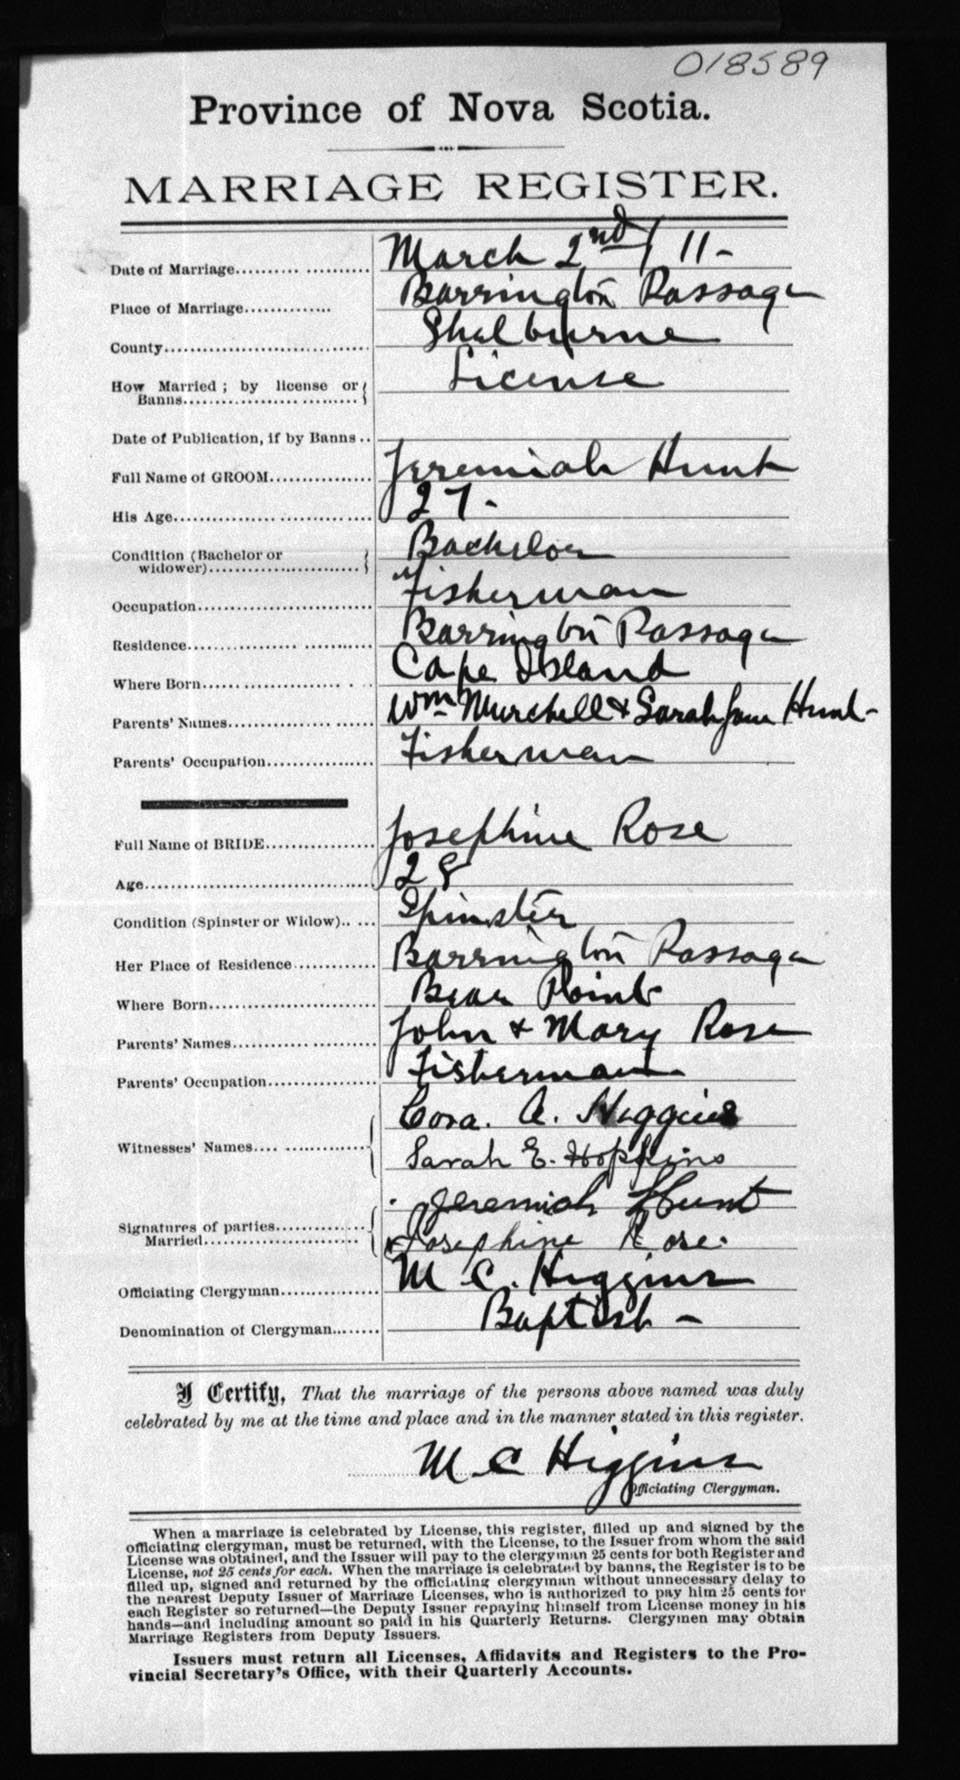 018589
Province of Nova Scotia.
MARRIAGE REGISTER.
Date of Marriage.................... March 2nd/11-
Place of Marriage.............. Barrington Passage
County.................................. Shelburne
How Married; by license or
Banns............................ License
Date of Publication, if by Banns ..
Full Name of GROOM................ Jeremiah Hunt
His Age.................................. 27-
Condition (Bachelor or
widower).......................... Bachelor
Occupation.............................. Fisherman
Residence.............................. Barrington Passage
Where Born............................ Cape Island
Parents' Names........................ Wm Murchell & Sarah Jane Hunt-
Parents' Occupation................ Fisherman
Full Name of BRIDE................. Josephine Rose
Age....................................... 28
Condition (Spinster or Widow)..... Spinster
Her Place of Residence............. Barrington Passage
Where Born........................... Bear Point
Parents' Names....................... John & Mary Rose
Parents' Occupation................ Fisherman
Witnesses' Names.................... Cora. A. Higgins
Sarah E. Hopkins
Signatures of parties............... Jeremiah Hunt
Married............................ Josephine Rose.
Officiating Clergyman.............. M C. Higgins
Denomination of Clergyman........ Baptist -
I Certify, That the marriage of the persons above named was duly
celebrated by me at the time and place and in the manner stated in this register.
M C Higgins
Officiating Clergyman.
When a marriage is celebrated by License, this register, filled up and signed by the
officiating clergyman, must be returned, with the License, to the Issuer from whom the said
License was obtained, and the Issuer will pay to the clergyman 25 cents for both Register and
License, not 25 cents for each. When the marriage is celebrated by banns, the Register is to be
filled up, signed and returned by the officiating clergyman without unnecessary delay to
the nearest Deputy Issuer of Marriage Licenses, who is authorized to pay him 25 cents for
each Register so returned—the Deputy Issuer repaying himself from License money in his
hands—and including amount so paid in his Quarterly Returns. Clergymen may obtain
Marriage Registers from Deputy Issuers.
Issuers must return all Licenses, Affidavits and Registers to the Pro-
vincial Secretary's Office, with their Quarterly Accounts.